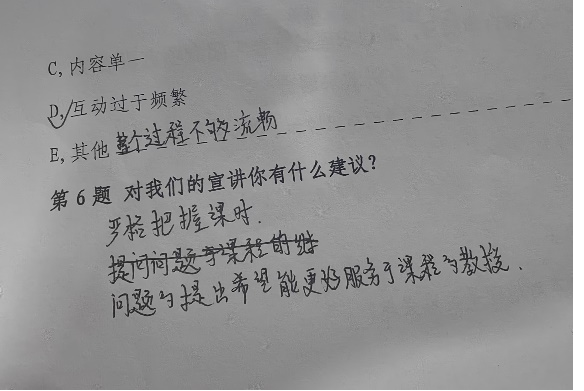 C, 内容单一
D, 互动过于频繁
E, 其他 整个过程不够流畅
第 6 题 对我们的宣讲你有什么建议?
严格把握课时.
提问问题与课程的
问题的提出希望能更好服务于课程的教授.